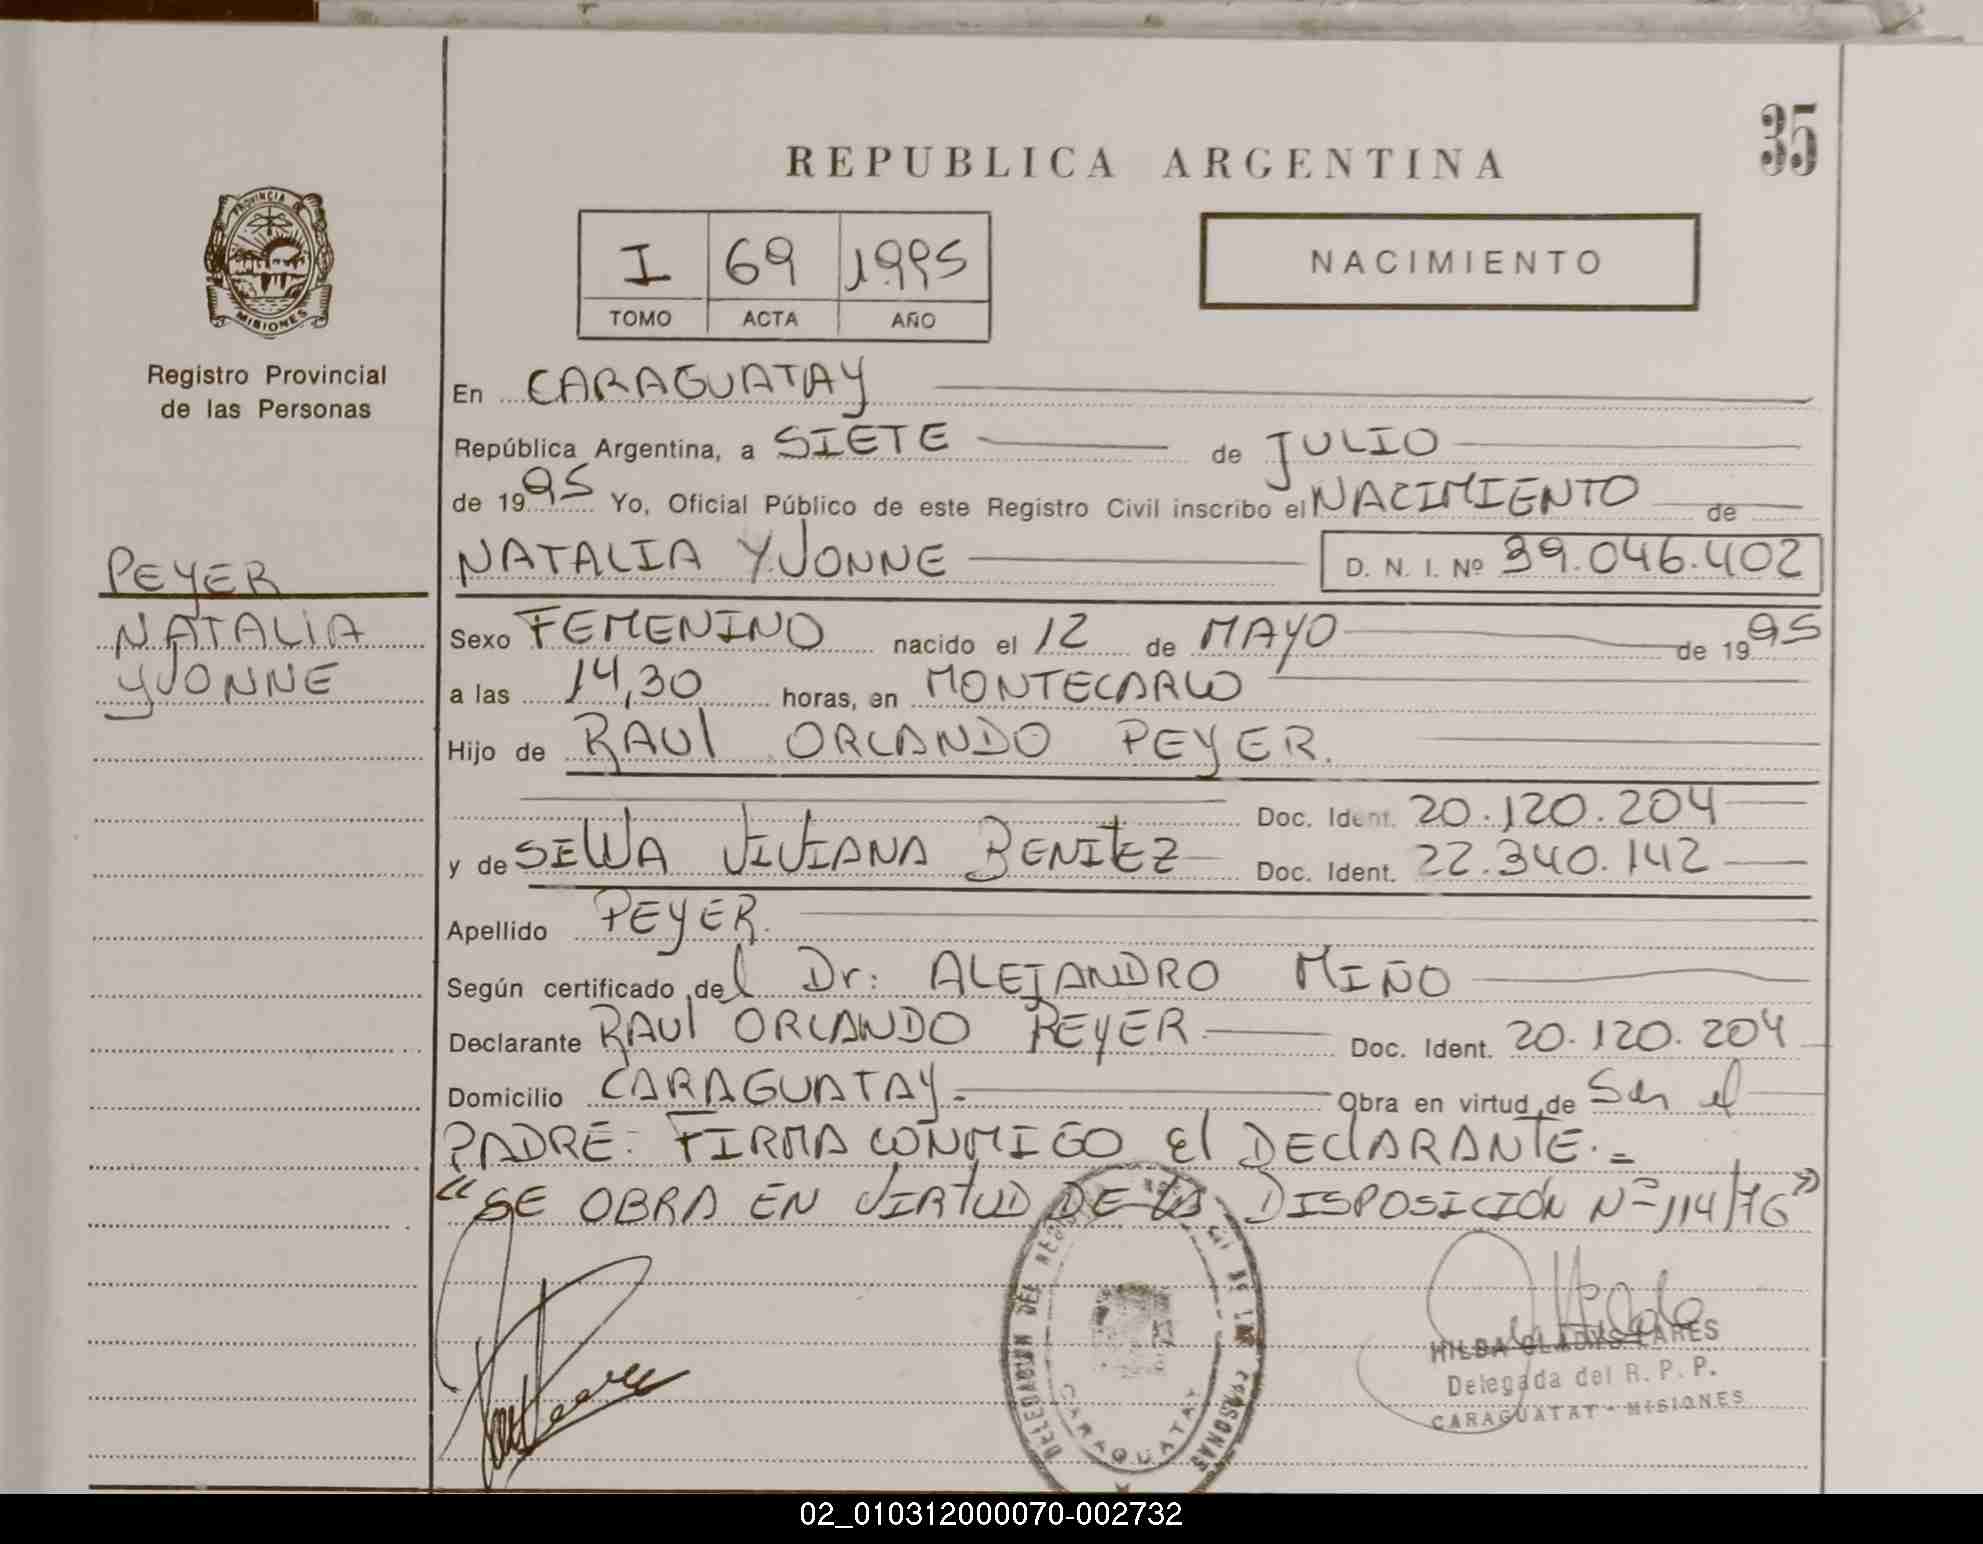 35
REPUBLICA ARGENTINA
PROVINCIA DE
MISIONES
I 69 1995
TOMO ACTA AÑO
NACIMIENTO
Registro Provincial
de las Personas
En CARAGUATAY
República Argentina, a SIETE de JULIO
de 1995 Yo, Oficial Público de este Registro Civil inscribo el NACIMIENTO de
NATALIA YVONNE D. N. I. Nº 39.046.402
PEYER
NATALIA
YVONNE
Sexo FEMENINO nacido el 12 de MAYO de 1995
a las 14,30 horas, en MONTECARLO
Hijo de RAUl ORLANDO PEYER.
Doc. Ident. 20.120.204
y de SElVA VIVIANA BENITEZ Doc. Ident. 22.340.142
Apellido PEYER.
Según certificado del Dr: ALEJANDRO MIÑO
Declarante RAUl ORLANDO PEYER Doc. Ident. 20.120.204
Domicilio CARAGUATAY.- Obra en virtud de Ser el
PADRE: FIRMA CONMIGO El DEClARANTE.=
"SE OBRA EN VIRTUD DE LA DISPOSICIÓN Nº 114/76"
DELEGACION DEL DE LAS PERSONAS
CARAGUATAY
HILDA GLADYS LARES
Delegada del R. P. P.
CARAGUATAY - MISIONES
02_010312000070-002732